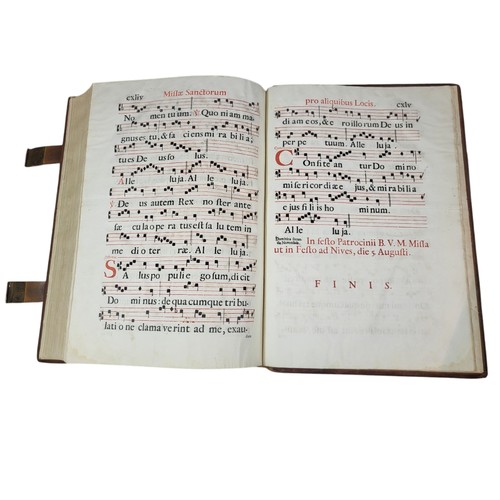 cxliv Missæ Sanctorum
No men tu um. ℣ Quo ni am ma
gnus es tu, & fa ci ens mi ra bi li a,
tu es De us so lus.
Alle lu ja. Al le lu ja.
℣ De us autem Rex no ster ante
sæ cu la o pe ra tus est sa lu tem in
me di o ter ræ. Al le lu ja.
Sa lus po pu li e go sum, di cit
Do mi nus: de qua cumque tri bu-
la ti o ne cla ma ve rint ad me, exau-
pro aliquibus Locis. cxlv
di am e os, & e ro il lo rum De us in
per pe tu um. Alle lu ja.
Con fi te an tur Do mi no
mi se ri cor di æ e jus, & mi ra bi li a
e jus fi li is ho mi num.
Al le lu ja.
In festo Patrocinii B. V. M. Missa
ut in Festo ad Nives, die 5 Augusti.
FINIS.